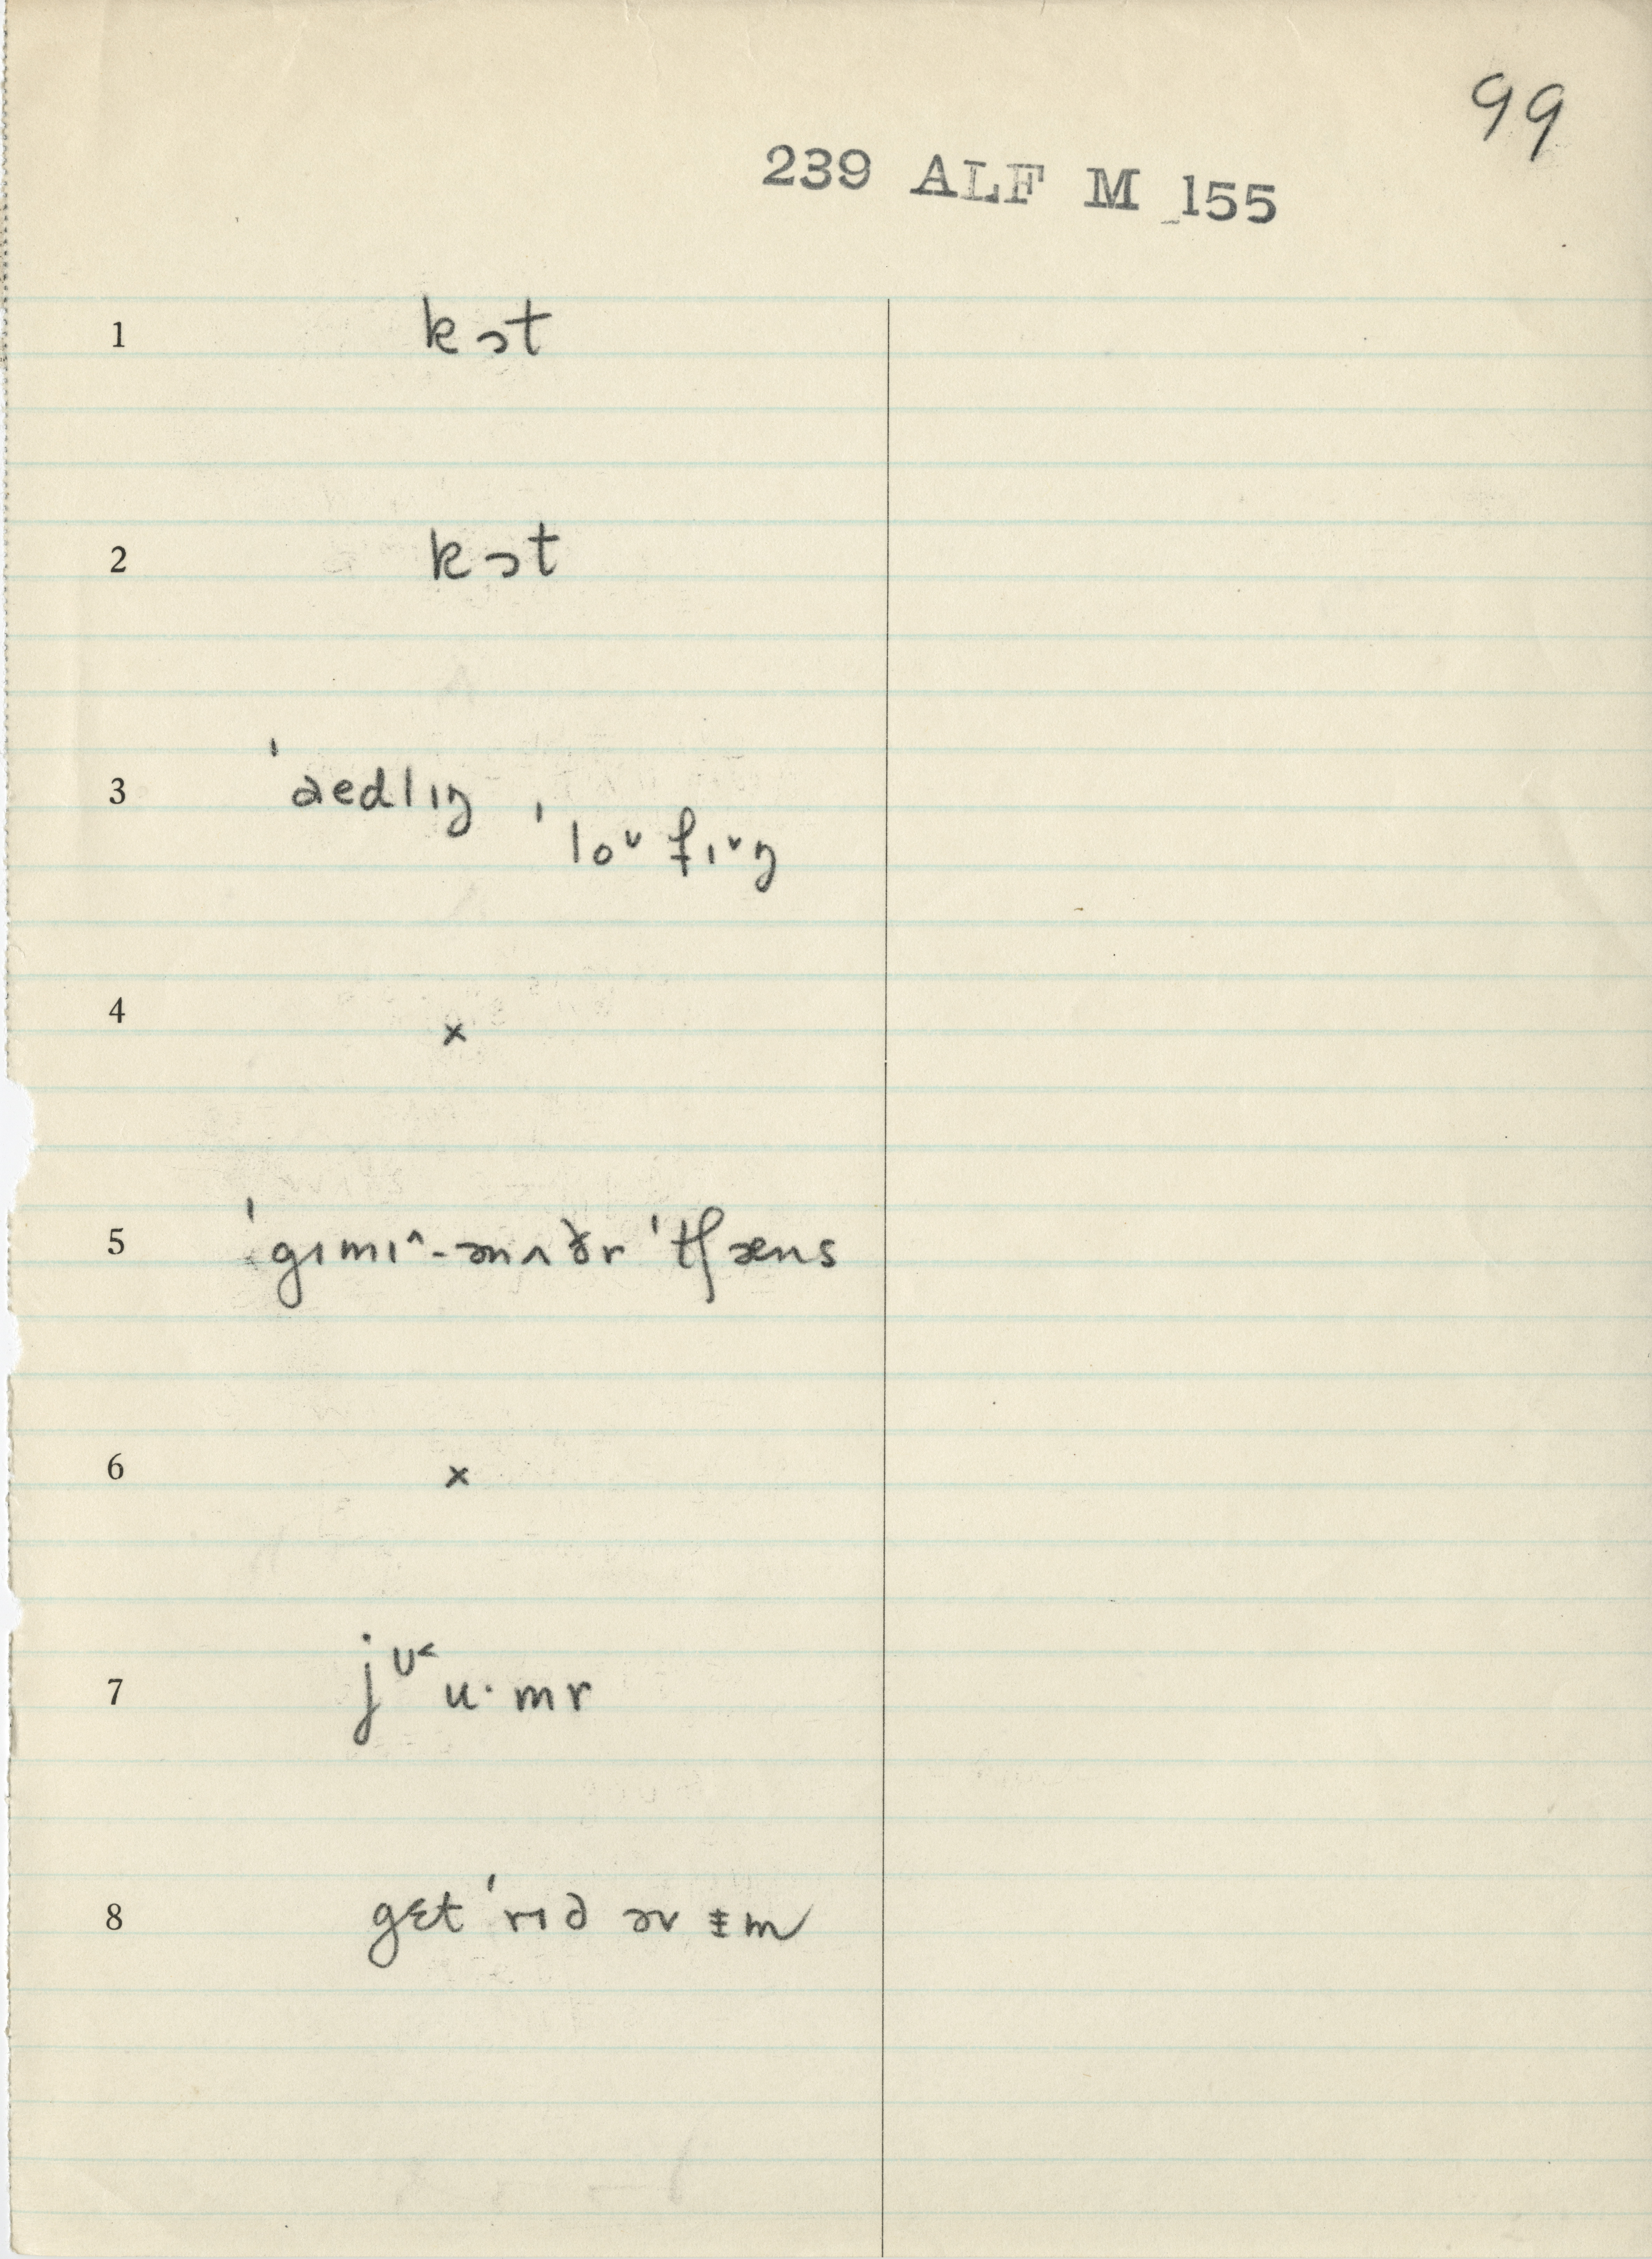 99
239 ALF M 155
1 kɔt
2 kɔt
3 ˈaedlɪŋ ˈloᵛfɪᵛŋ
4 x
5 ˈgɪmɪ^-ənʌðr ˈtʃæns
6 x
7 jᶷ˂u·mr
8 gɛt ˈrɪd əv ɨm